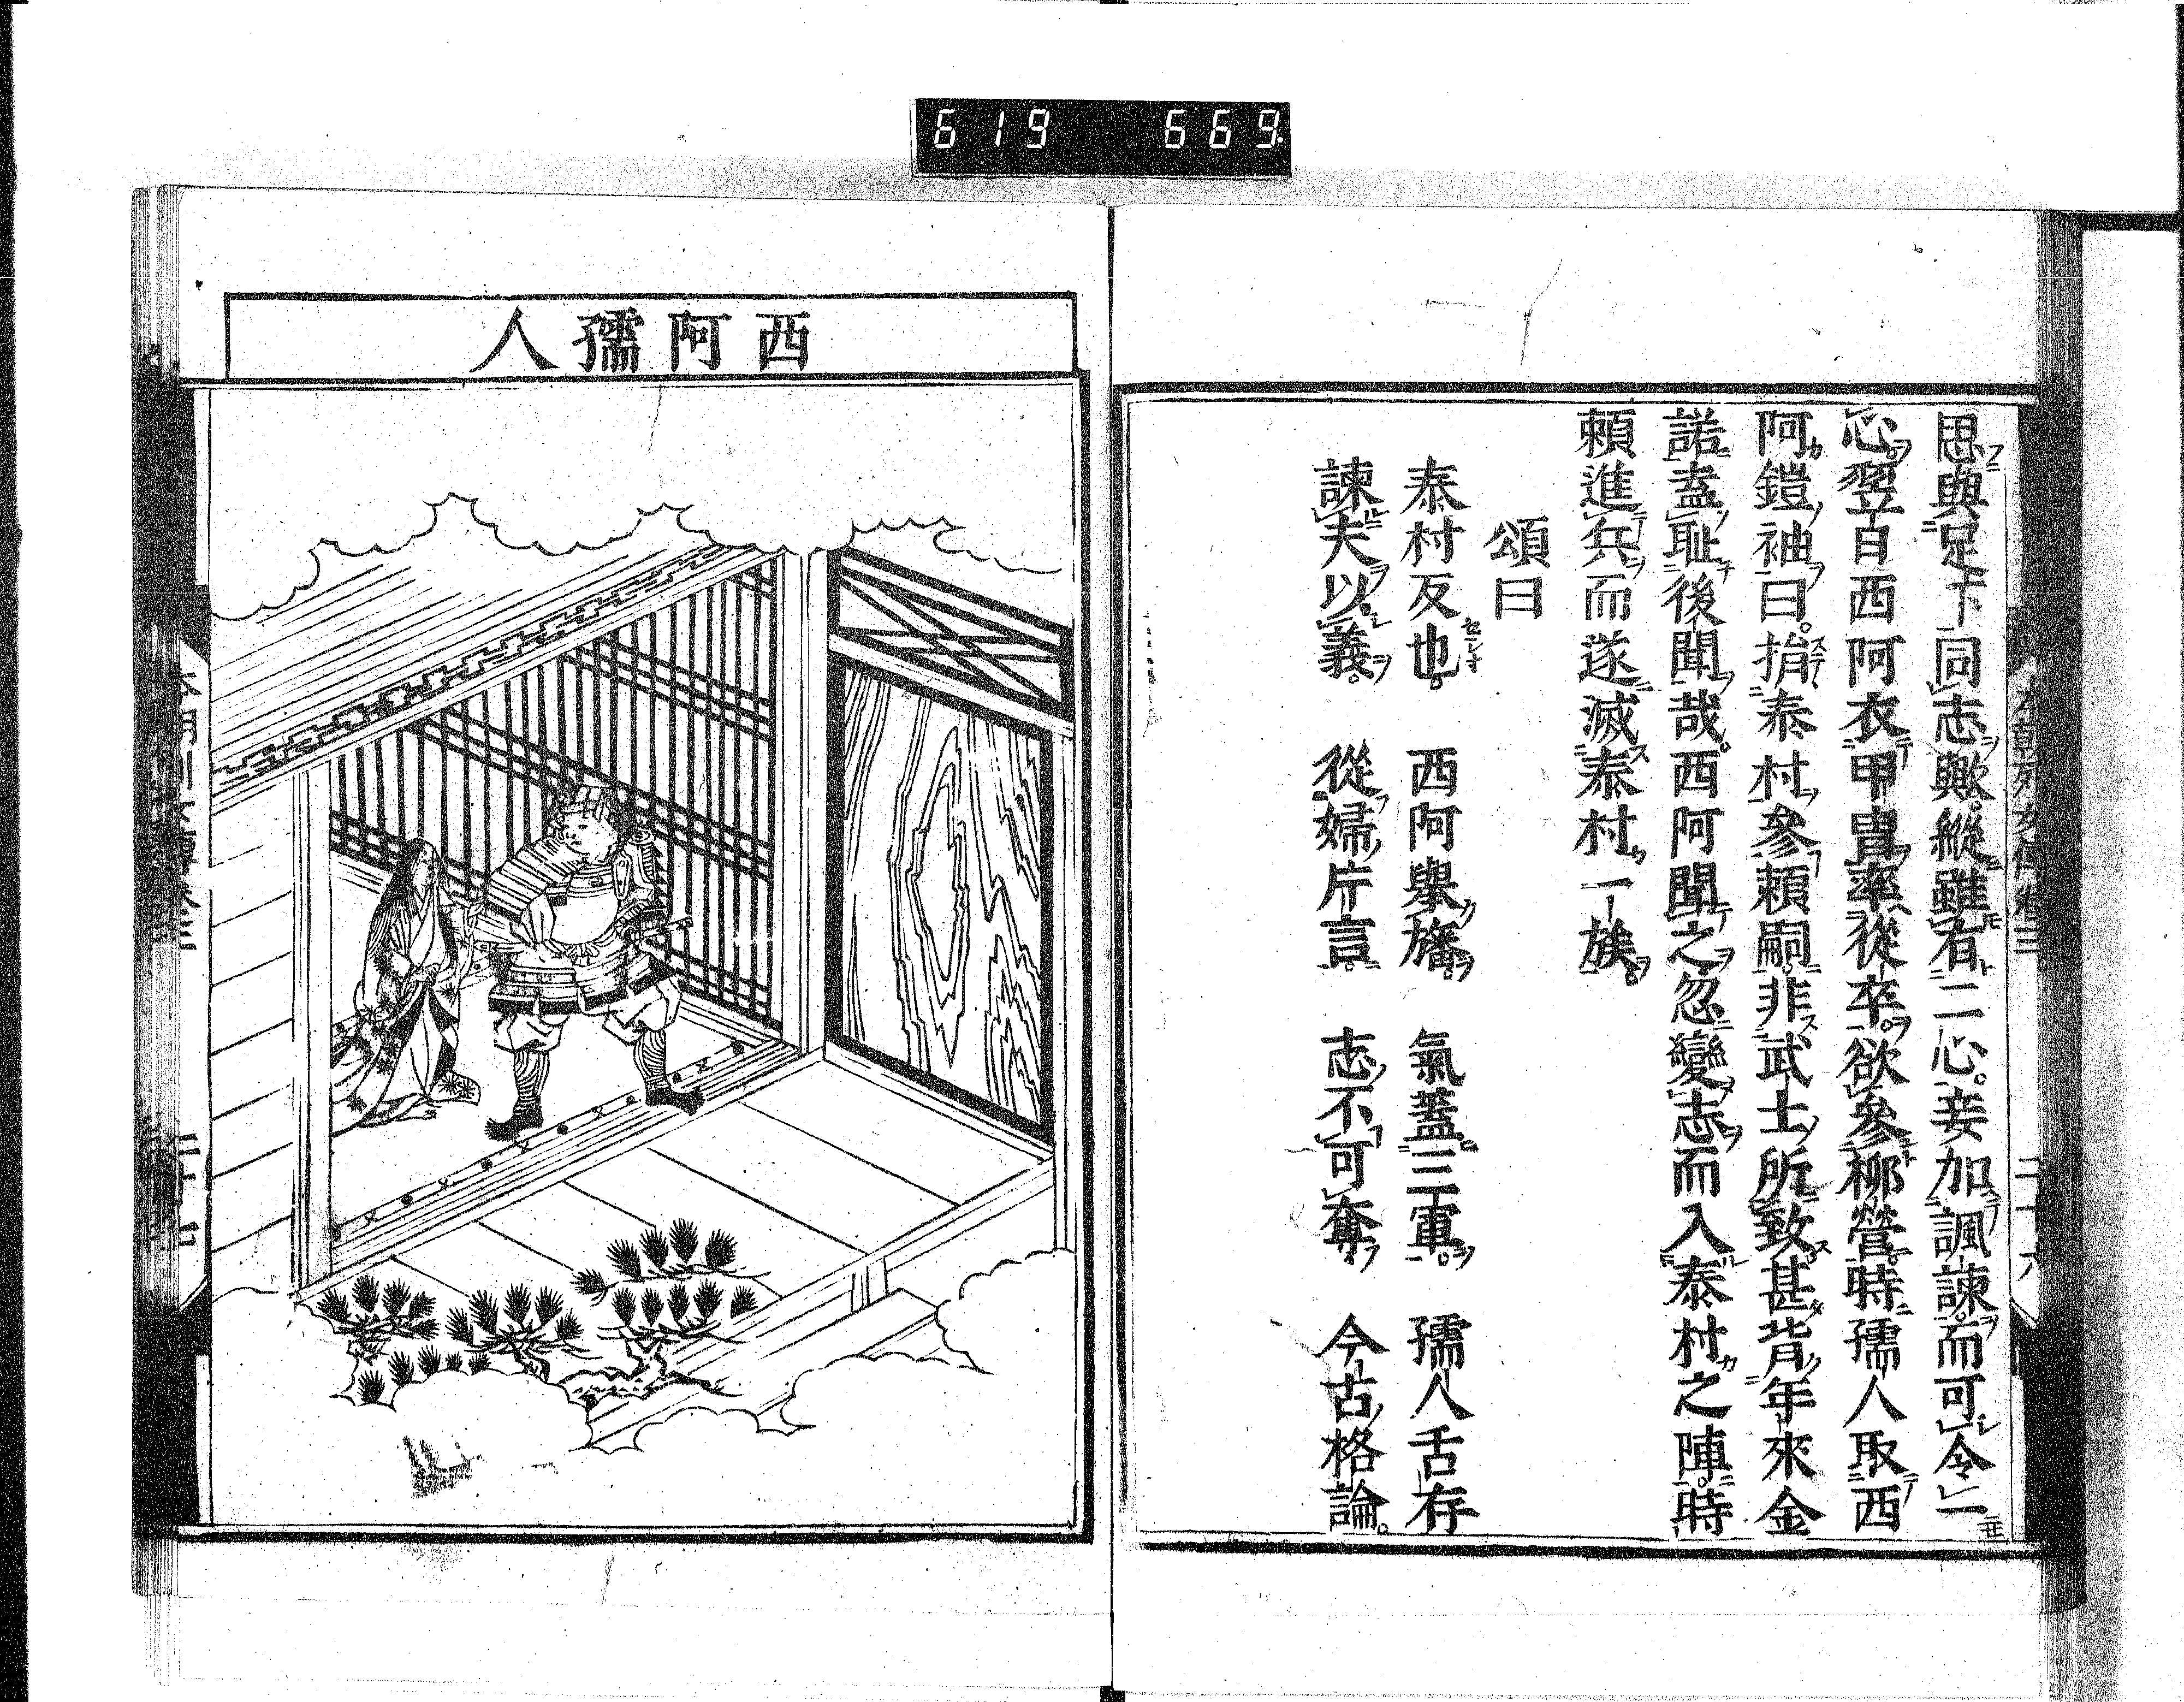 619 669
思與足下同志歟縱雖有二心妾加諷諫而可令一
心翌日西阿衣甲冑率從卒欲參柳營時孺人取西
阿鎧袖曰捐泰村參頼嗣非武士所致甚背年來金
諾盍耻後聞哉西阿聞之忽變志而入泰村之陣時
頼進兵而遂滅泰村一族
頌曰
泰村反也 西阿舉旛 氣蓋三軍 孺人舌存
諫夫以義 從婦片言 志不可奪 今古格論
本朝列女傳卷三 二十六
西阿孺人